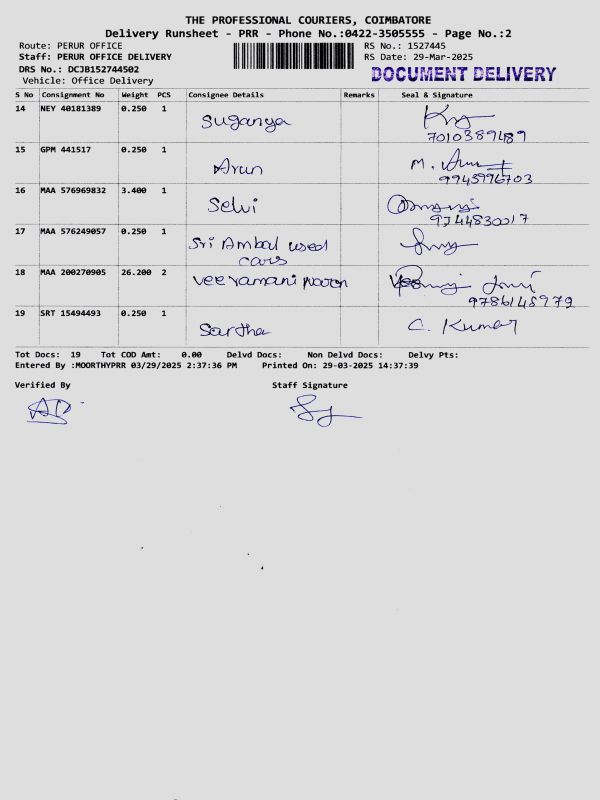 THE PROFESSIONAL COURIERS, COIMBATORE
Delivery Runsheet - PRR - Phone No.:0422-3505555 - Page No.:2
Route: PERUR OFFICE
RS No.: 1527445
Staff: PERUR OFFICE DELIVERY
RS Date: 29-Mar-2025
DRS No.: DCJB152744502
DOCUMENT DELIVERY
Vehicle: Office Delivery
S No Consignment No Weight PCS Consignee Details Remarks Seal & Signature
14 NEY 40181389 0.250 1 Suganya
7010389489
15 GPM 441517 0.250 1 Arun M.
9945996703
16 MAA 576969832 3.400 1 Selvi
17 MAA 576249057 0.250 1 Sri Ambal used
cars
18 MAA 200270905 26.200 2 Veeramani
9786148979
19 SRT 15494493 0.250 1 Sartha C. Kumar
Tot Docs: 19 Tot COD Amt: 0.00 Delvd Docs: Non Delvd Docs: Delvy Pts:
Entered By :MOORTHYPRR 03/29/2025 2:37:36 PM Printed On: 29-03-2025 14:37:39
Verified By Staff Signature